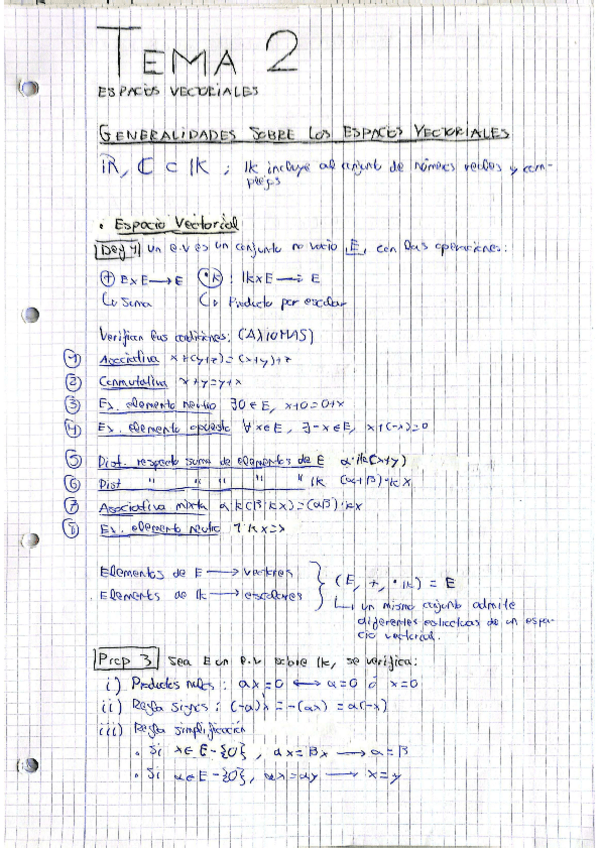 TEMA 2
ESPACIOS VECTORIALES
GENERALIDADES SOBRE LOS ESPACIOS VECTORIALES
ℝ, ℂ ⊂ 𝕂 ; 𝕂 incluye al conjunto de números reales y com-
plejos
• Espacio Vectorial
Def 1 Un e.v es un conjunto no vacío E, con las operaciones:
⊕ E×E → E  •𝕂 : 𝕂×E → E
↳ Suma  ↳ Producto por escalar
Verifican las condiciones: (AXIOMAS)
① Asociativa x+(y+z)=(x+y)+z
② Conmutativa x+y=y+x
③ Ex. elemento neutro ∃0∈E, x+0=0+x
④ Ex. elemento opuesto ∀x∈E, ∃-x∈E, x+(-x)=0
⑤ Dist. respecto suma de elementos de E α·𝕂(x+y)
⑥ Dist " " " " " 𝕂 (α+β)·𝕂x
⑦ Asociativa mixta α·𝕂(β·𝕂x)=(αβ)·𝕂x
⑧ Ex. elemento neutro 1·𝕂x=x
Elementos de E → vectores
Elementos de 𝕂 → escalares } (E, +, ·𝕂) = E
↳ un mismo conjunto admite
diferentes estructuras de un espa-
cio vectorial.
Prop 3 Sea E un e.v sobre 𝕂, se verifica:
i) Productos nulos: αx=0 ⟷ α=0 ó x=0
ii) Regla signos: (-α)x=-(αx)=α(-x)
iii) Regla simplificación
• Si x∈E-{0}, αx=βx → α=β
• Si α∈E-{0}, αx=αy → x=y